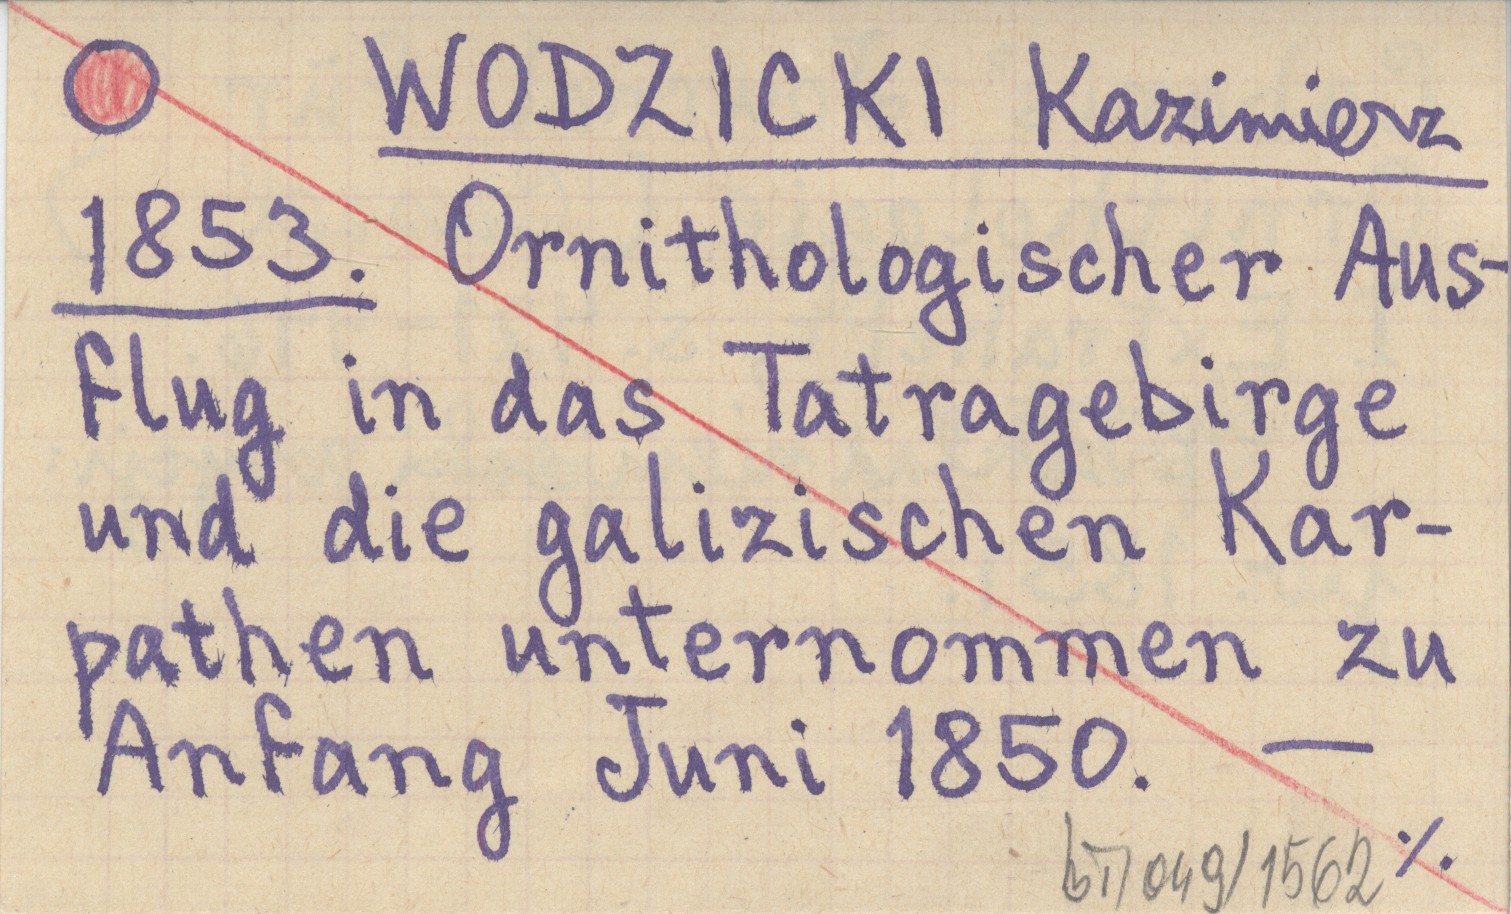 WODZICKI Kazimierz
1853. Ornithologischer Aus-
flug in das Tatragebirge
und die galizischen Kar-
pathen unternommen zu
Anfang Juni 1850. —
049/1562 ./.